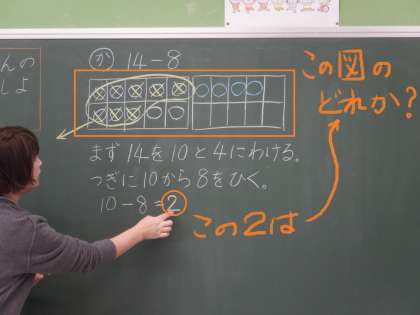 んの
しよ
か 14-8
この図の
どれか?
まず 14を10と4にわける。
つぎに10から8をひく。
10-8=2
この2は